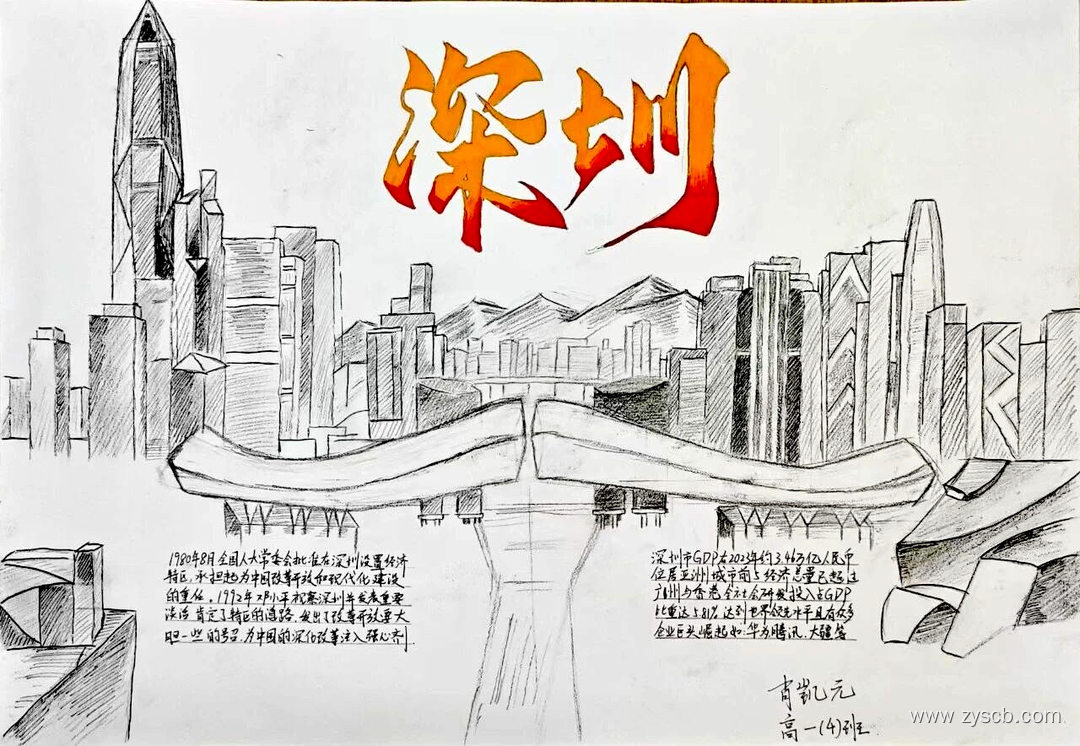 深圳
1980年8月全国人大常委会批准在深圳设置经济
特区,承担起为中国改革开放和现代化建设
的重任。1992年邓小平视察深圳并发表重要
谈话肯定了特区的道路,发出了改革开放要大
胆一些的号召,为中国的深化改革注入强心剂
深圳市GDP在2023年约3.46万亿人民币
位居亚洲城市前5经济总量已超过
广州与香港全社会研发投入占GDP
比重达5.81%达到世界领先水平且有众多
企业巨头崛起如:华为腾讯、大疆等
肖凯元
高一(4)班
www.zyscb.com